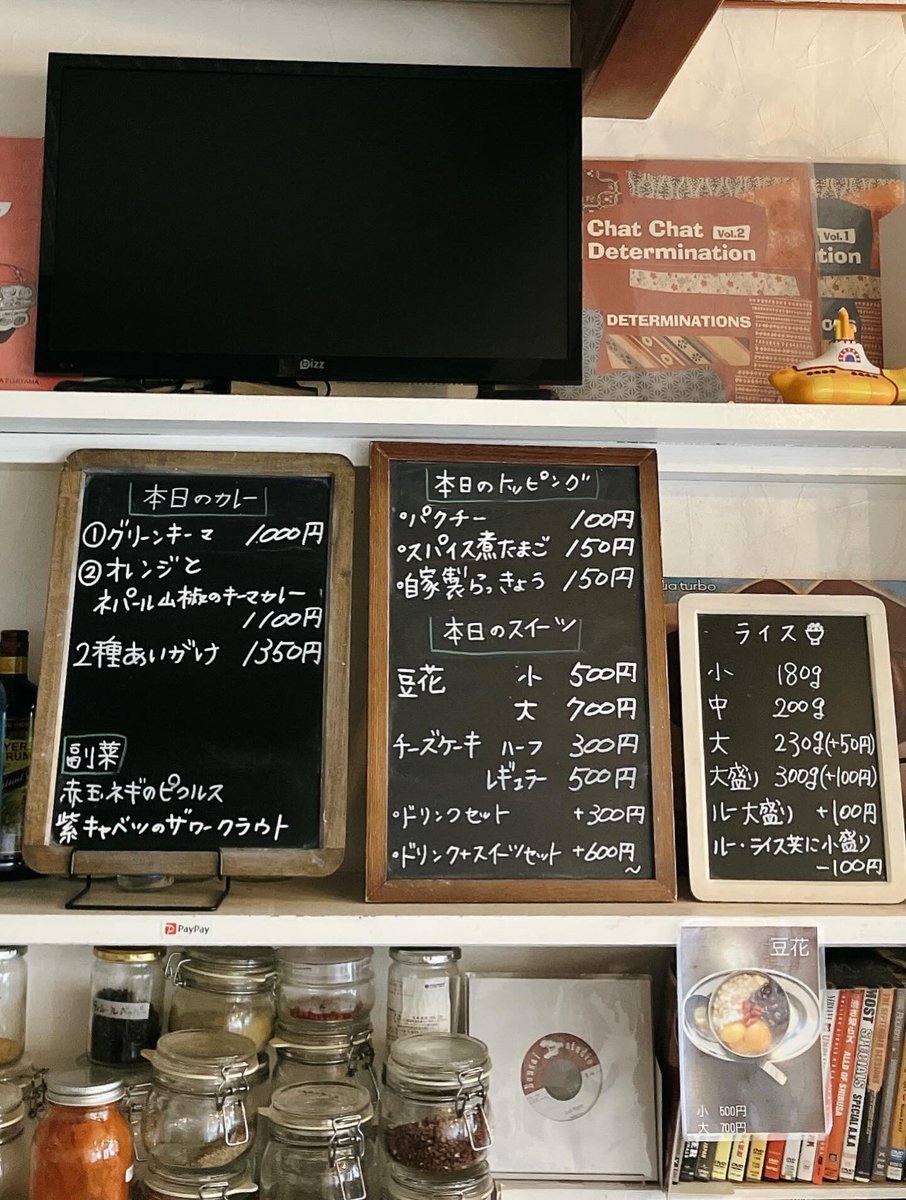 Chat Chat Vol.2
Determination
DETERMINATIONS
Vol.1
tion
Bizz
本日のカレー
①グリーンキーマ 1000円
②オレンジと
ネパール山椒のキーマカレー
1100円
2種あいがけ 1350円
副菜
赤玉ネギのピクルス
紫キャベツのザワークラウト
本日のトッピング
・パクチー 100円
・スパイス煮たまご 150円
・自家製らっきょう 150円
本日のスイーツ
豆花 小 500円
大 700円
チーズケーキ ハーフ 300円
レギュラー 500円
・ドリンクセット +300円
・ドリンク+スイーツセット +600円
~
ua turbo
ライス
小 180g
中 200g
大 230g(+50円)
大盛り 300g(+100円)
ルー大盛り +100円
ルー・ライス共に小盛り
-100円
PayPay
豆花
小 500円
大 700円